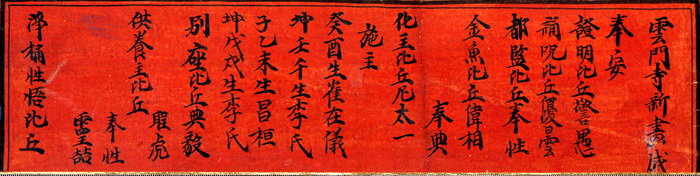 雲門寺新畫成
奉安
證明比丘警愚
誦呪比丘優曇
都監比丘奉性
金魚比丘偉相
奉典
化主比丘尼太一
施主
癸酉生崔在儀
坤壬午生李氏
子乙未生昌桓
坤戊戌生李氏
別座比丘典毅
供養主比丘
奉性
比丘性悟比丘